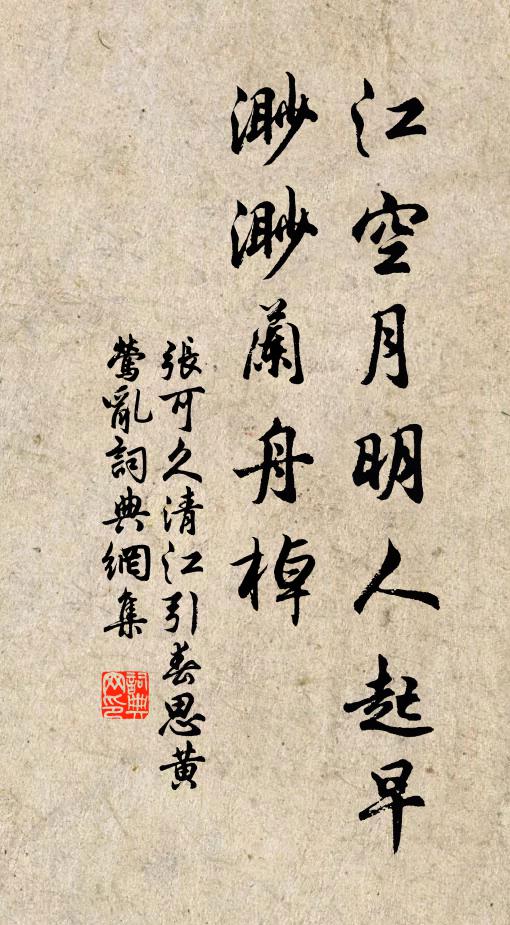 江空月明人起早
渺渺蘭舟棹
張可久清江引春思黃
鶯亂詞典網集
詞典网印